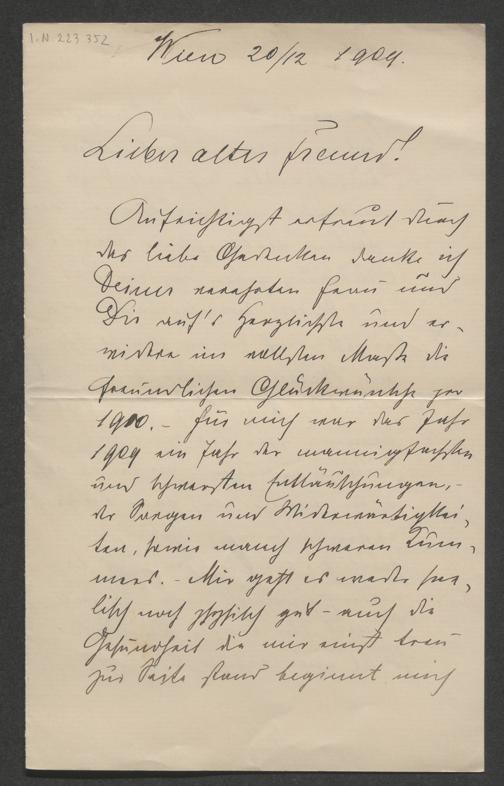 I.N. 223 352
Wien 20/12 1909.
Lieber alter Freund!
Aufrichtigst erfreut durch
das liebe Gedenken danke ich
Deiner verehrten Frau und
Dir auf's Herzlichste und er-
widere im vollsten Maße die
freundlichen Glückwünsche per
1910. – Für mich war das Jahr
1909 ein Jahr der mannigfachsten
und schwersten Enttäuschungen, –
der Sorgen und Widerwärtigkei-
ten, sowie manch schweren Kum-
mers. – Mir geht es weder see-
lisch noch physisch gut – auch die
Gesundheit die mir einst treu
zur Seite stand beginnt mich